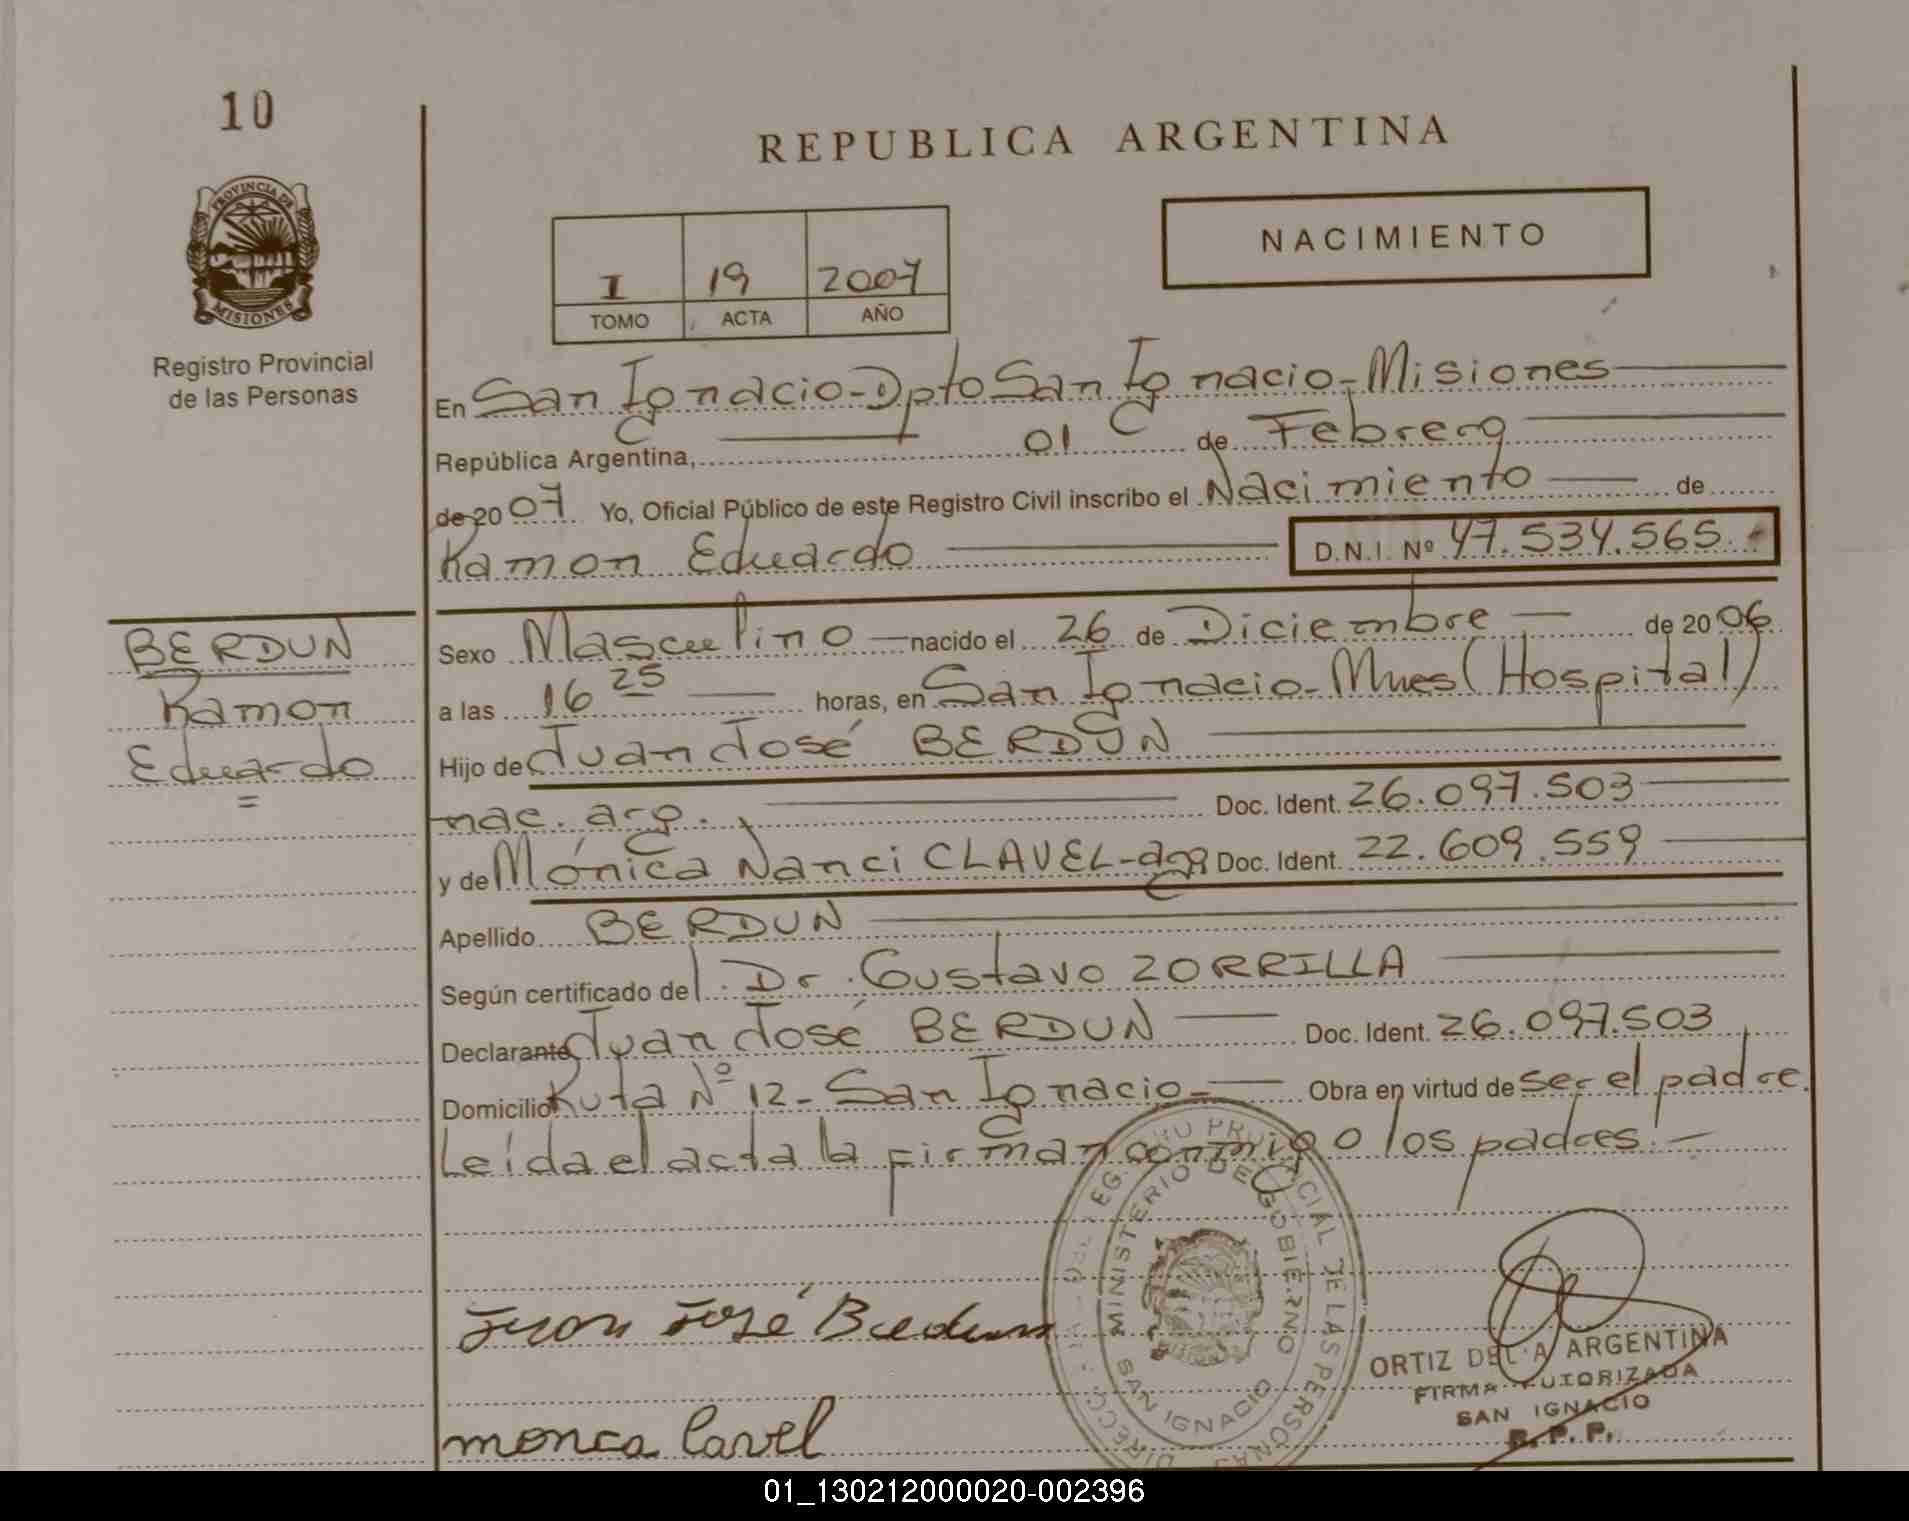 10
PROVINCIA DE
MISIONES
Registro Provincial
de las Personas
REPUBLICA ARGENTINA
NACIMIENTO
I 19 2007
TOMO ACTA AÑO
En San Ignacio-Dpto San Ignacio-Misiones
República Argentina, 01 de Febrero
de 2007 Yo, Oficial Público de este Registro Civil inscribo el Nacimiento de
Ramon Eduardo D.N.I. Nº 47.534.565.
BERDUN
Ramon
Eduardo
=
Sexo Masculino nacido el 26 de Diciembre de 2006
a las 16 25 horas, en San Ignacio-Mnes (Hospital)
Hijo de Juan José BERDUN
nac. arg. Doc. Ident. 26.097.503
y de Mónica Nanci CLAVEL-arg Doc. Ident. 22.609.559
Apellido BERDUN
Según certificado del Dr. Gustavo ZORRILLA
Declarante Juan José BERDUN Doc. Ident. 26.097.503
Domicilio Ruta Nº 12- San Ignacio- Obra en virtud de ser el padre.
Leída el acta la firman conmigo los padres.-
Juan José Berdun
monca Cavel
MINISTERIO DE GOBIERNO
SAN IGNACIO
PROVINCIAL DE LAS PERSONAS
ORTIZ DELIA ARGENTINA
FIRMA AUTORIZADA
SAN IGNACIO
R. P. P.
01_130212000020-002396